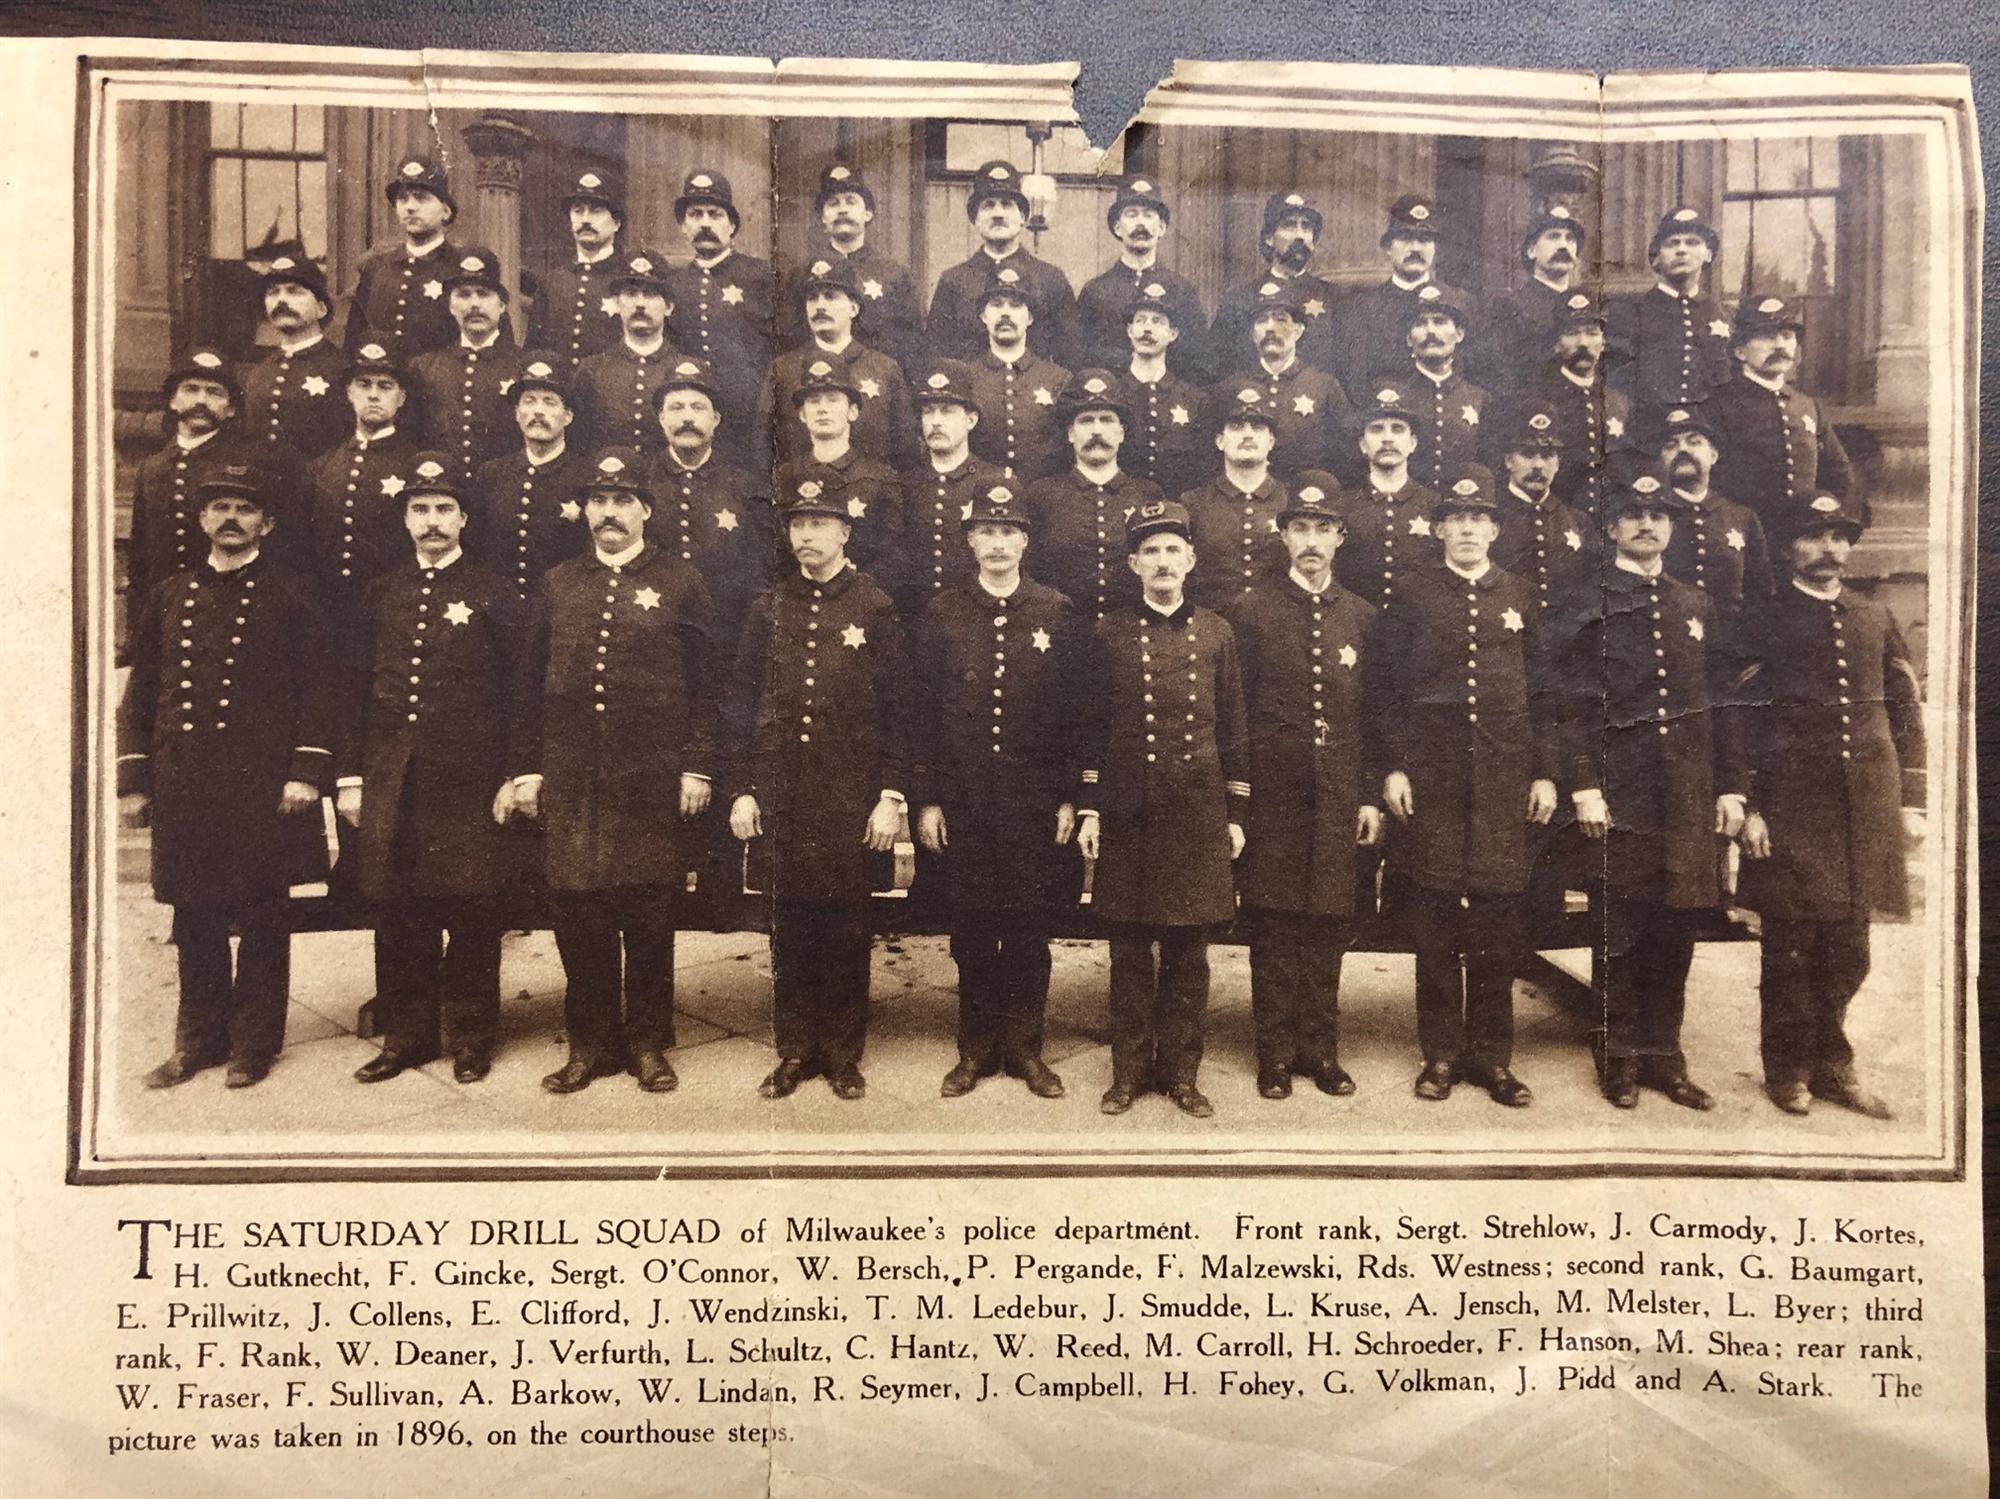 THE SATURDAY DRILL SQUAD of Milwaukee's police department. Front rank, Sergt. Strehlow, J. Carmody, J. Kortes,
H. Gutknecht, F. Gincke, Sergt. O'Connor, W. Bersch, P. Pergande, F. Malzewski, Rds. Westness; second rank, G. Baumgart,
E. Prillwitz, J. Collens, E. Clifford, J. Wendzinski, T. M. Ledebur, J. Smudde, L. Kruse, A. Jensch, M. Melster, L. Byer; third
rank, F. Rank, W. Deaner, J. Verfurth, L. Schultz, C. Hantz, W. Reed, M. Carroll, H. Schroeder, F. Hanson, M. Shea; rear rank,
W. Fraser, F. Sullivan, A. Barkow, W. Lindan, R. Seymer, J. Campbell, H. Fohey, G. Volkman, J. Pidd and A. Stark. The
picture was taken in 1896, on the courthouse steps.